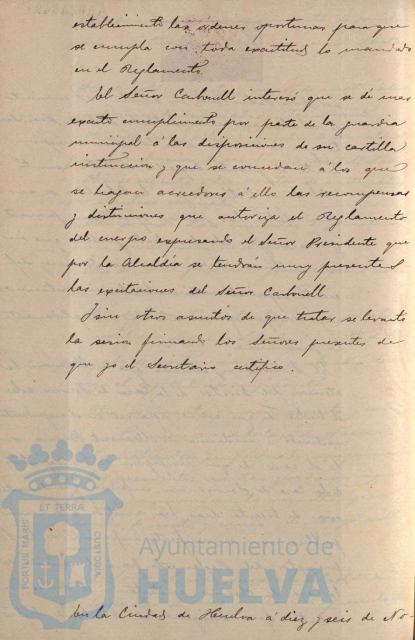 establecimiento las ordenes oportunas para que
se cumpla con toda exactitud lo mandado
en el Reglamento.
El Señor Carbonell interesó que se dé mas
exacto cumplimiento por parte de la guardia
municipal á las disposiciones de su cartilla
instruccion y que se concedan á los que
se hagan acreedores á ello las recompensas
y distinciones que autoriza el Reglamento
del cuerpo expresando el Señor Presidente que
por la Alcaldía se tendrán muy presentes
las excitaciones del Señor Carbonell
Y sin otros asuntos de que tratar se levantó
la sesion firmando los Señores presentes de
que yo el Secretario certifico.
ET TERRÆ
PORTUS MARIS
CUSTODIA
Ayuntamiento de
HUELVA
En la Ciudad de Huelva á diez y seis de No-